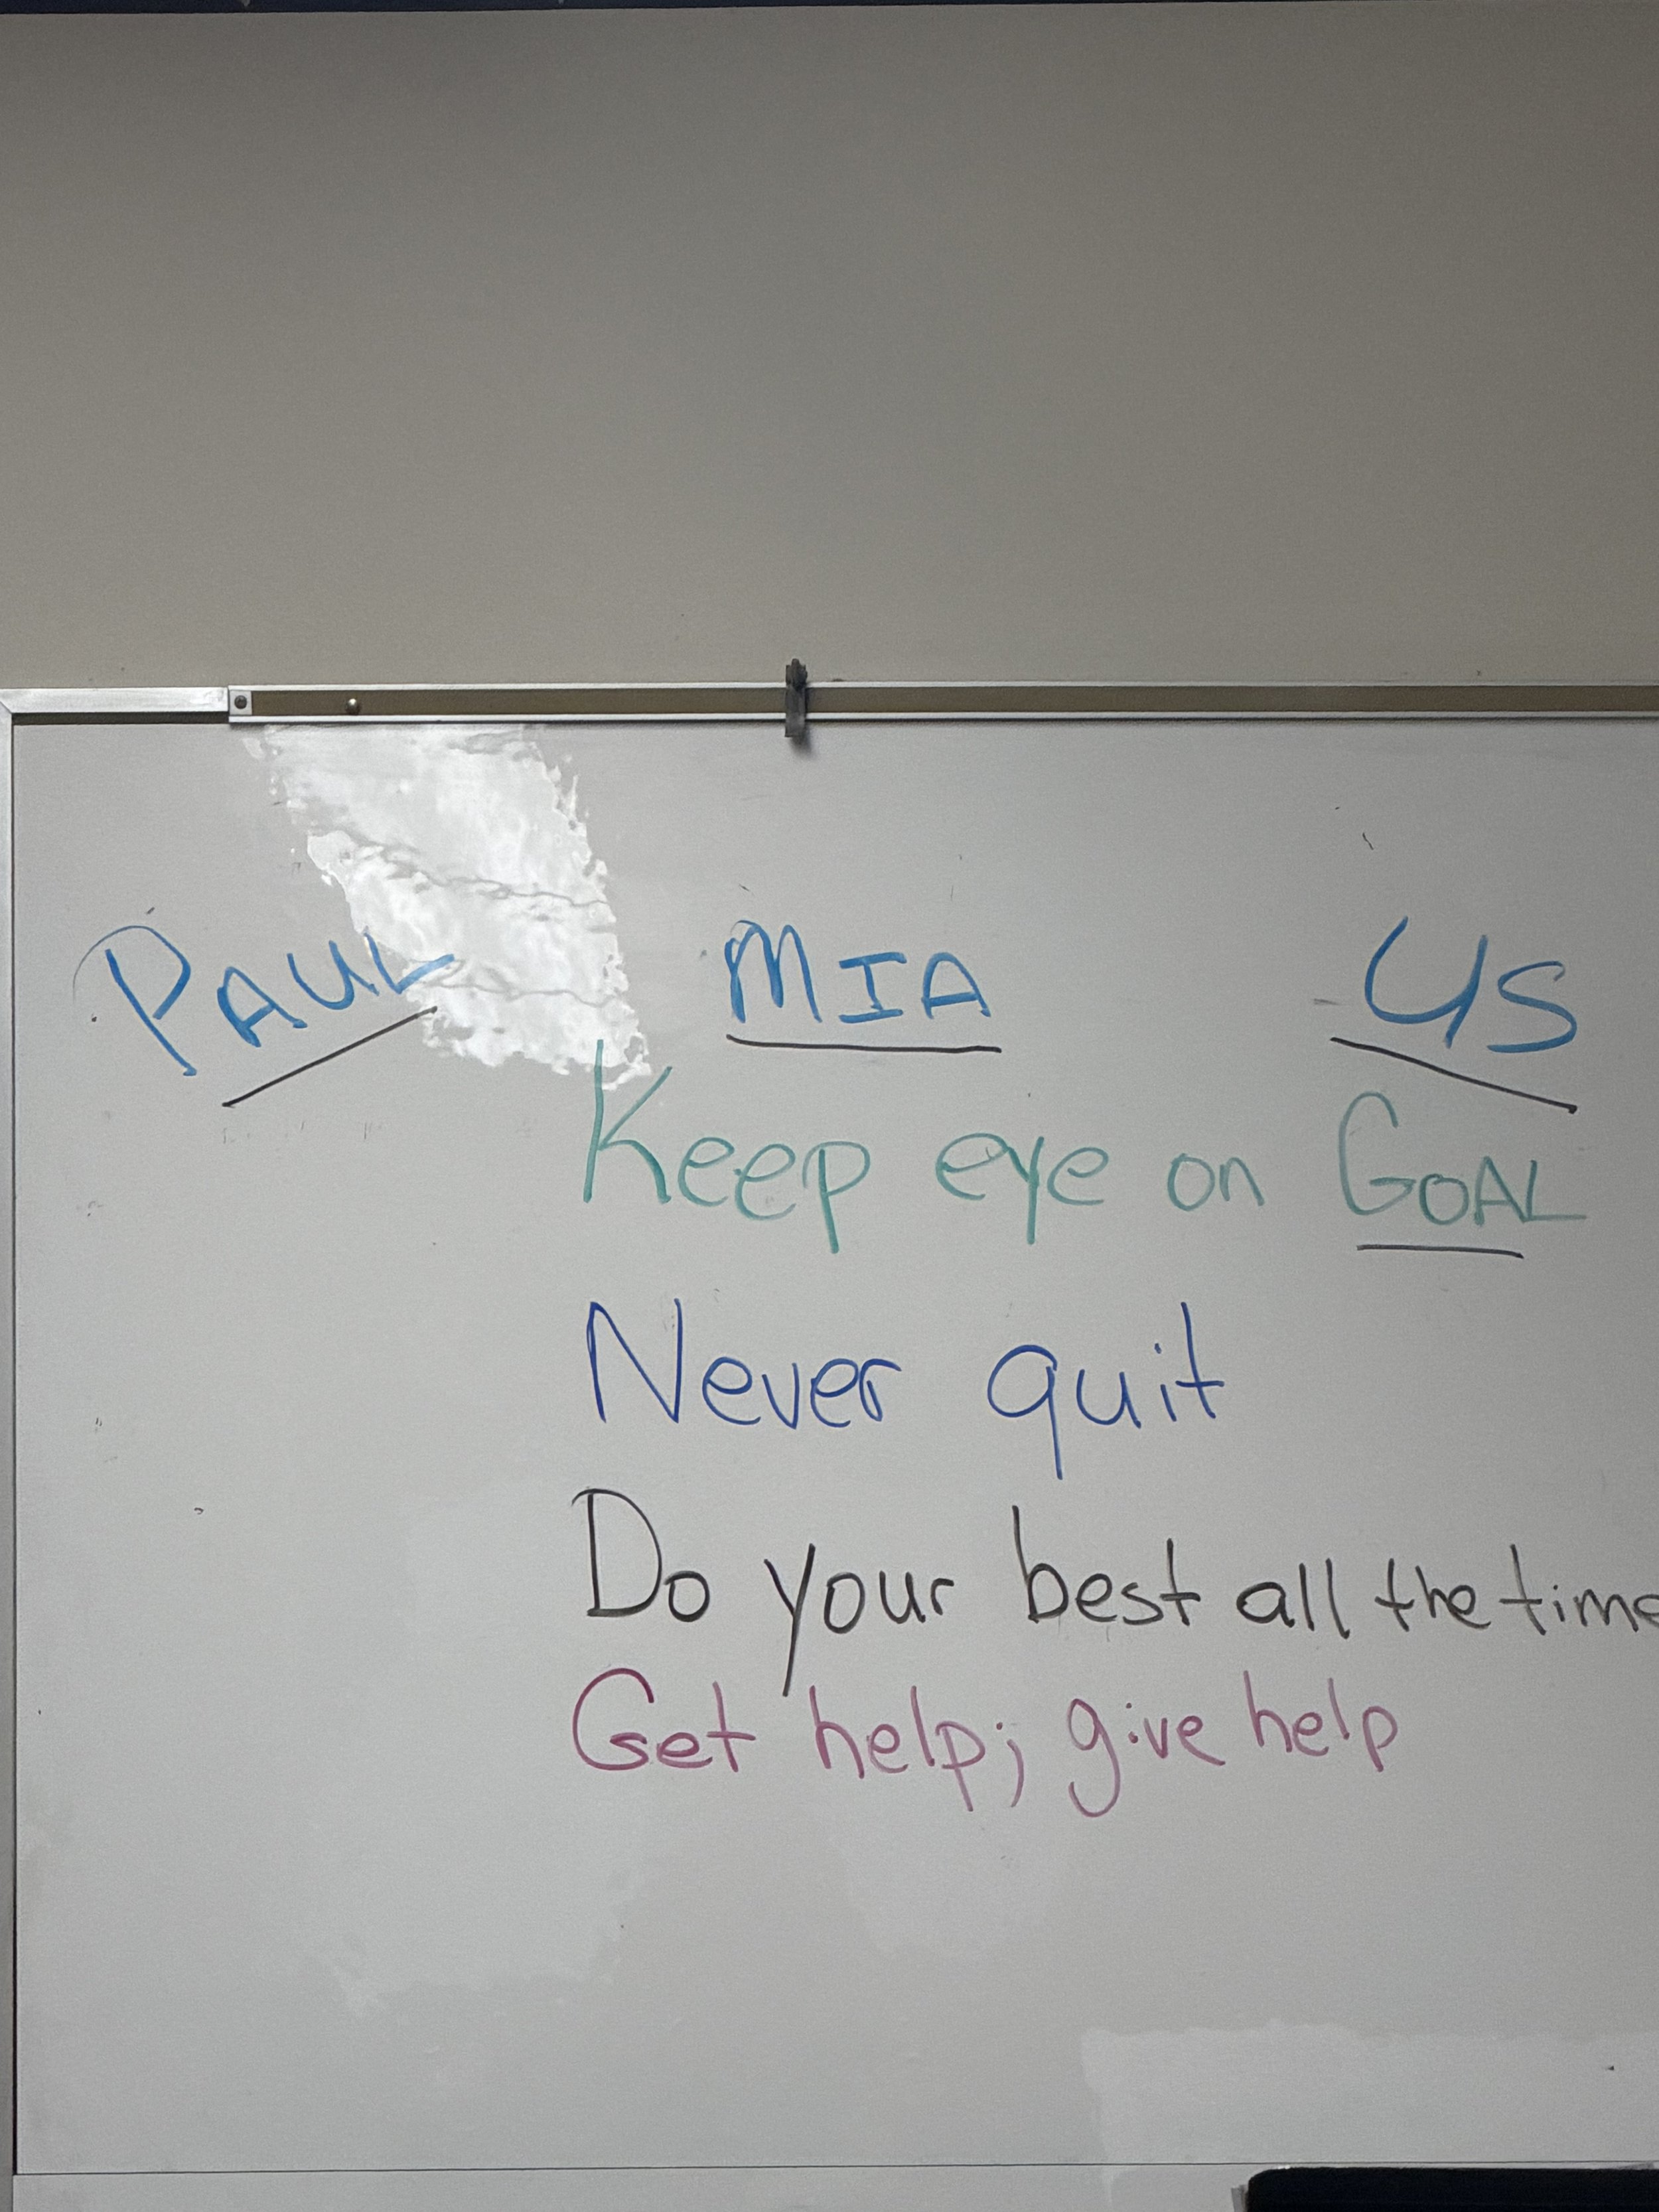 PAUL MIA US
Keep eye on GOAL
Never quit
Do your best all the time
Get help; give help